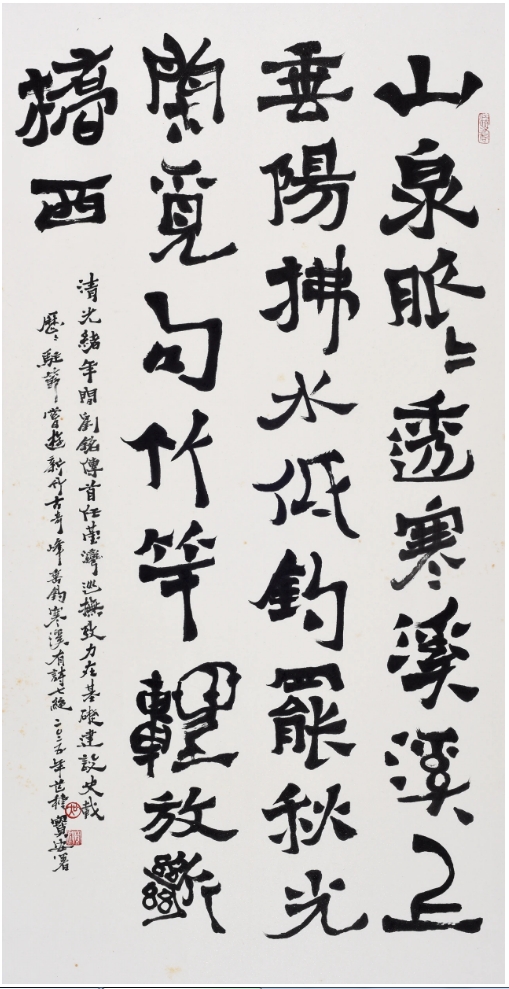 山泉脈々透寒溪溪上
垂陽拂水低釣罷秋光
閑覓句竹竿輕放斷
橋西
清光緒年間劉銘傳首任臺灣巡撫致力在基礎建設史載
歷々駐節々嘗遊新竹古奇峰喜釣寒溪有詩七絕二〇二五年 署